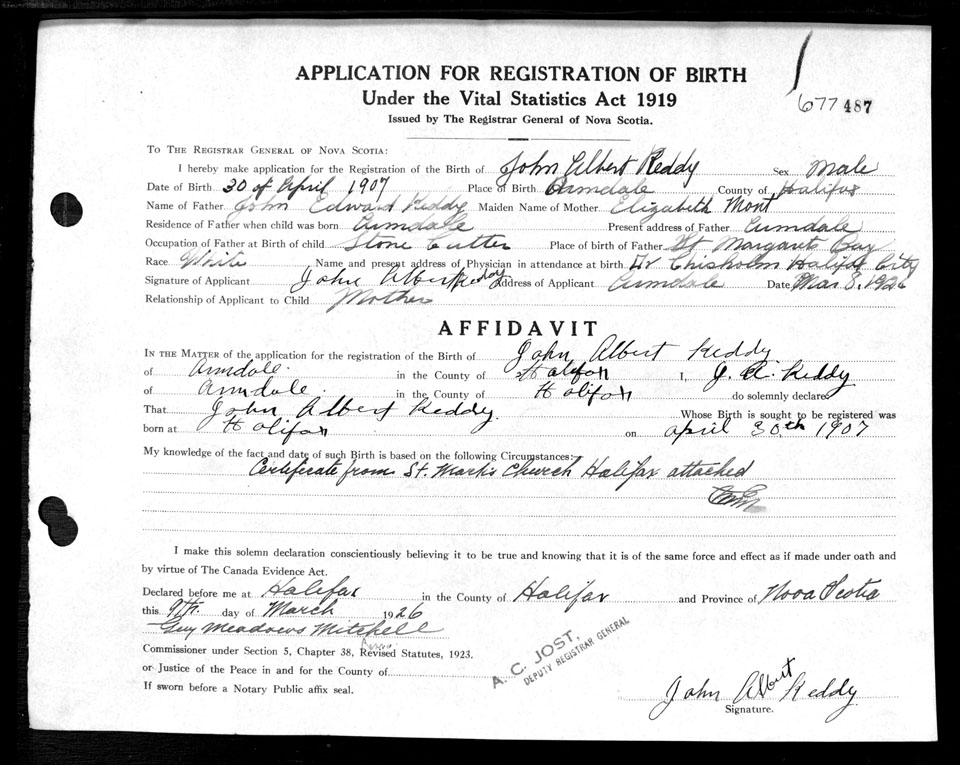 APPLICATION FOR REGISTRATION OF BIRTH
Under the Vital Statistics Act 1919
Issued by The Registrar General of Nova Scotia.
677 487
TO THE REGISTRAR GENERAL OF NOVA SCOTIA:
I hereby make application for the Registration of the Birth of John Albert Keddy Sex Male
Date of Birth 30 of April 1907 Place of Birth Armdale County of Halifax
Name of Father John Edward Keddy Maiden Name of Mother Elizabeth Mont
Residence of Father when child was born Armdale Present address of Father Armdale
Occupation of Father at Birth of child Stone Cutter Place of birth of Father St Margarets Bay
Race White Name and present address of Physician in attendance at birth Dr Chisholm Halifax City
Signature of Applicant John Albert Keddy Address of Applicant Armdale Date Mar 8. 1926
Relationship of Applicant to Child Mother
AFFIDAVIT
IN THE MATTER of the application for the registration of the Birth of John Albert Keddy
of Armdale. in the County of Halifax I, J. A. Keddy
of Armdale. in the County of Halifax do solemnly declare
That John Albert Keddy. Whose Birth is sought to be registered was
born at Halifax on april 30.th 1907
My knowledge of the fact and date of such Birth is based on the following Circumstances:
Certificate from St. Mark's Church Halifax attached
I make this solemn declaration conscientiously believing it to be true and knowing that it is of the same force and effect as if made under oath and
by virtue of The Canada Evidence Act.
Declared before me at Halifax in the County of Halifax and Province of Nova Scotia
this 9th. day of March 1926
Guy Meadows Mitchell
Commissioner under Section 5, Chapter 38, Revised Statutes, 1923.
or Justice of the Peace in and for the County of
If sworn before a Notary Public affix seal.
A. C. JOST,
DEPUTY REGISTRAR GENERAL
John Albert Keddy
Signature.